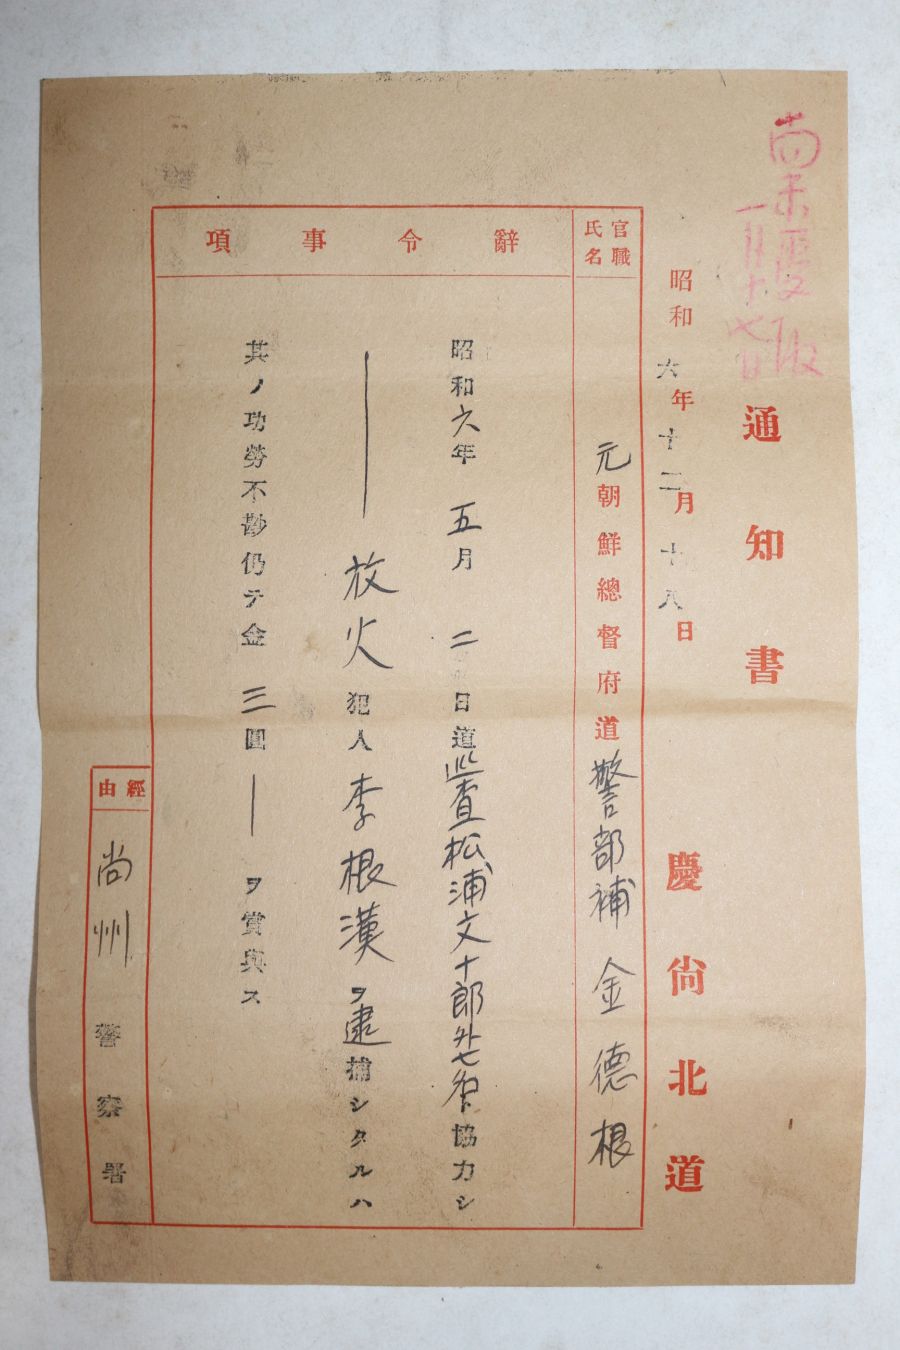 通知書
慶尙北道
昭和六年十二月十八日
官職
氏名
元朝鮮總督府道警部補 金德根
辭令事項
昭和六年 五月 二日道巡査松浦文十郎外七名ト協力シ
放火犯人李根漢ヲ逮捕シタルハ
其ノ功勞不尠仍テ金 三圓 ヲ賞與ス
經由
尚州 警察署